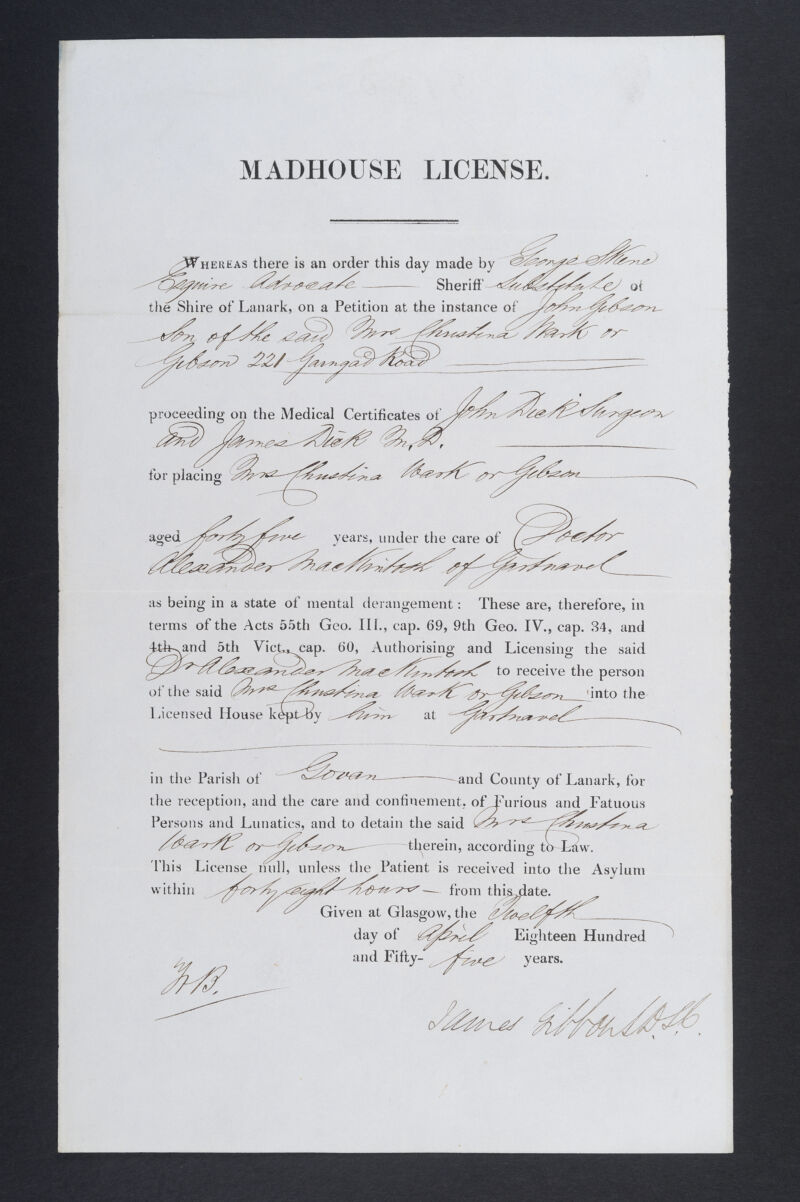 MADHOUSE LICENSE.
WHEREAS there is an order this day made by George Skene
Esquire Advocate Sheriff Substitute of
the Shire of Lanark, on a Petition at the instance of John Gibson
Son of the said Mrs Christina Wark or
Gibson 221 Garngad Road
proceeding on the Medical Certificates of John Dick Surgeon
and James Dick M.D.
for placing Mrs Christina Wark or Gibson
aged forty five years, under the care of Doctor
Alexander MacKintosh of Gartnavel
as being in a state of mental derangement: These are, therefore, in
terms of the Acts 55th Geo. III., cap. 69, 9th Geo. IV., cap. 34, and
4th and 5th Vict., cap. 60, Authorising and Licensing the said
Dr Alexander MacKintosh to receive the person
of the said Mrs Christina Wark or Gibson into the
Licensed House kept by him at Gartnavel
in the Parish of Govan and County of Lanark, for
the reception, and the care and confinement, of Furious and Fatuous
Persons and Lunatics, and to detain the said Mrs Christina
Wark or Gibson therein, according to Law.
This License null, unless the Patient is received into the Asylum
within forty eight hours from this date.
Given at Glasgow, the Twelfth
day of April Eighteen Hundred
and Fifty-five years.
James Gibbon